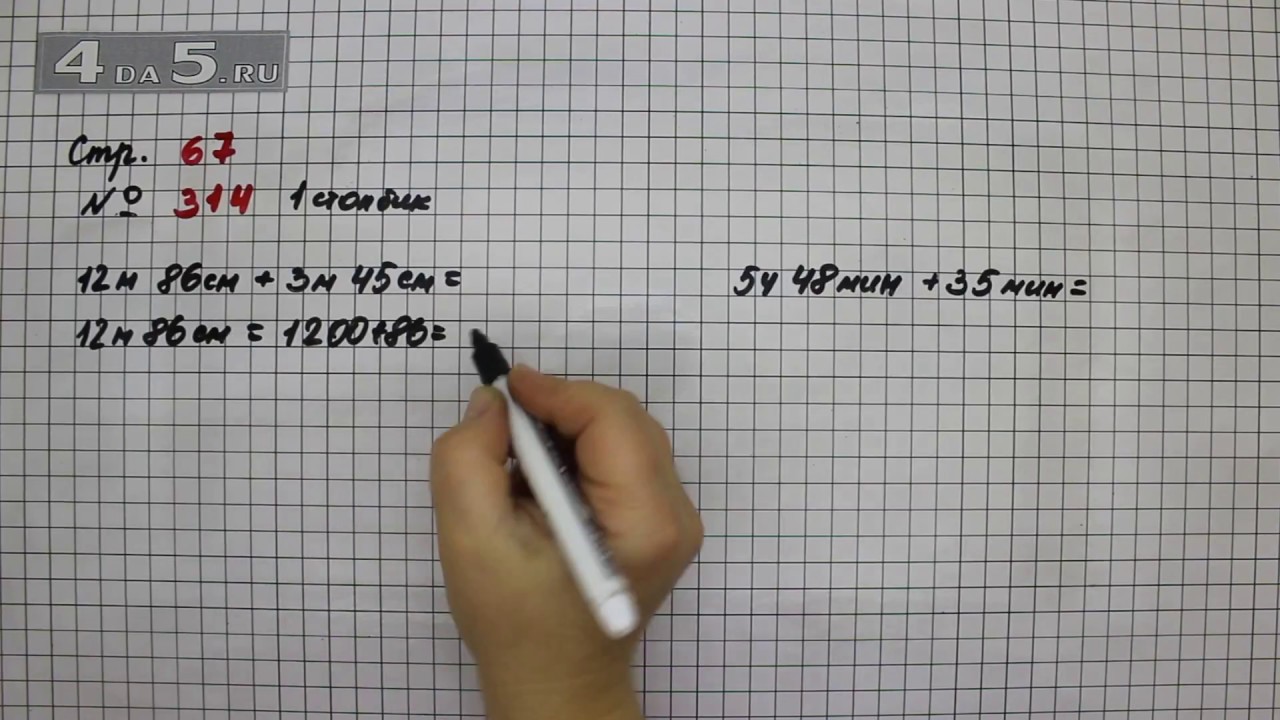 4DA5.RU
Стр. 67
№ 314 1 столбик
12м 86см + 3м 45см =
12м 86см = 1200+86=
5ч 48мин + 35мин =